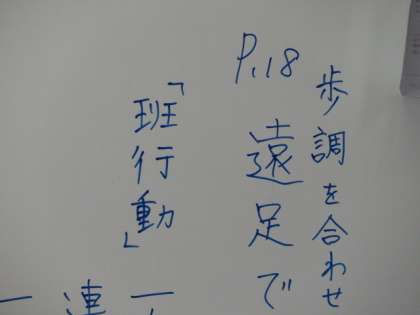 歩調を合わせ
P.18
遠足で
「班行動」